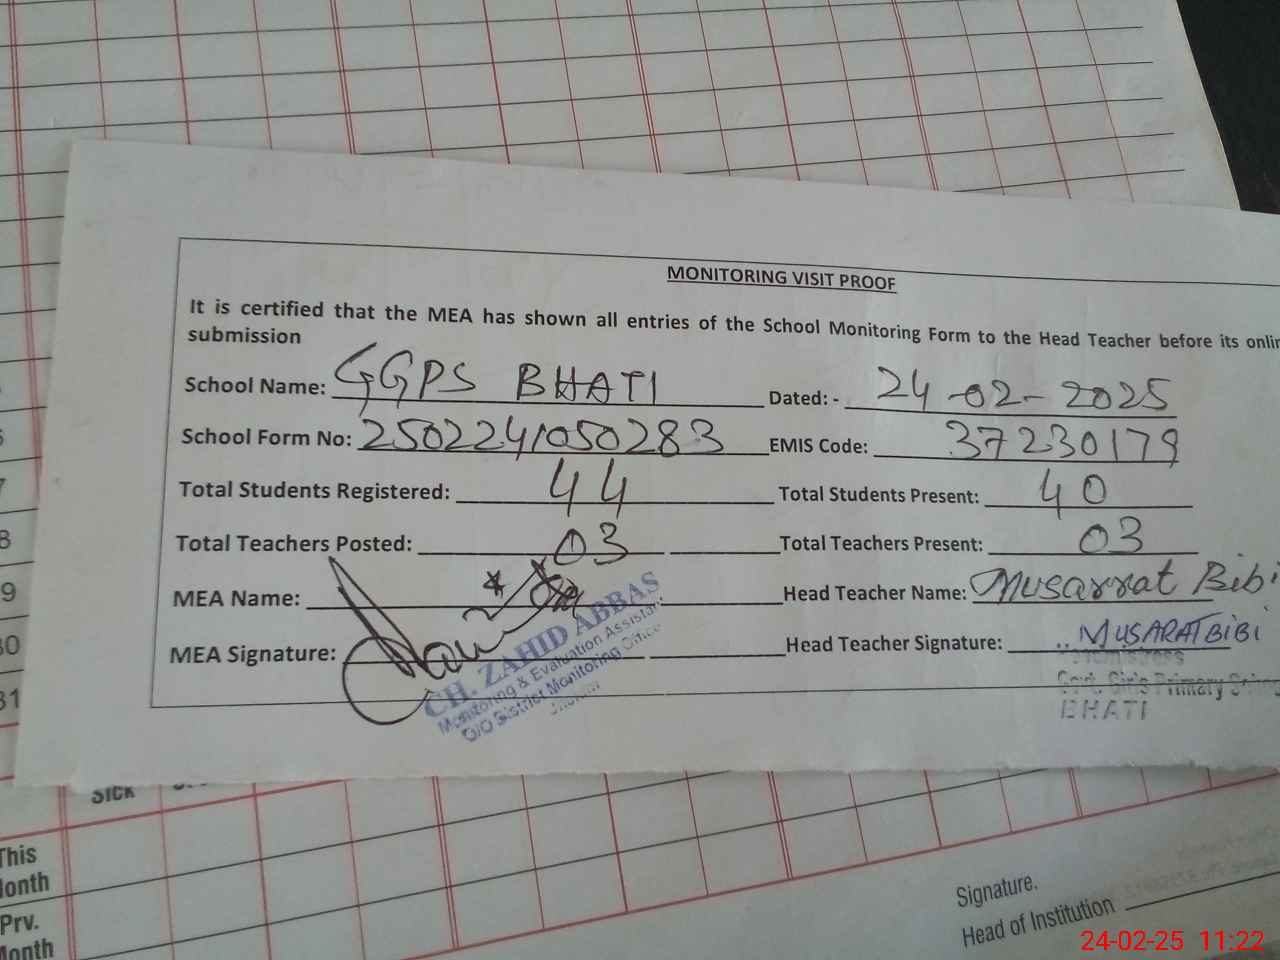 MONITORING VISIT PROOF
It is certified that the MEA has shown all entries of the School Monitoring Form to the Head Teacher before its onlin
submission
School Name: GGPS BHATI Dated: - 24-02-2025
School Form No: 2502241050283 EMIS Code: 37230179
Total Students Registered: 44 Total Students Present: 40
Total Teachers Posted: 03 Total Teachers Present: 03
MEA Name: Head Teacher Name: Musarrat Bibi
MEA Signature: Head Teacher Signature: MUSARAT BIBI
CH. ZAHID ABBAS
Monitoring & Evaluation Assistant
O/O District Monitoring Office
Headmistress
Govt. Girls Primary School
BHATI
7
8
9
30
31
SICK
This
Month
Prv.
Month
Signature.
Head of Institution
24-02-25 11:22